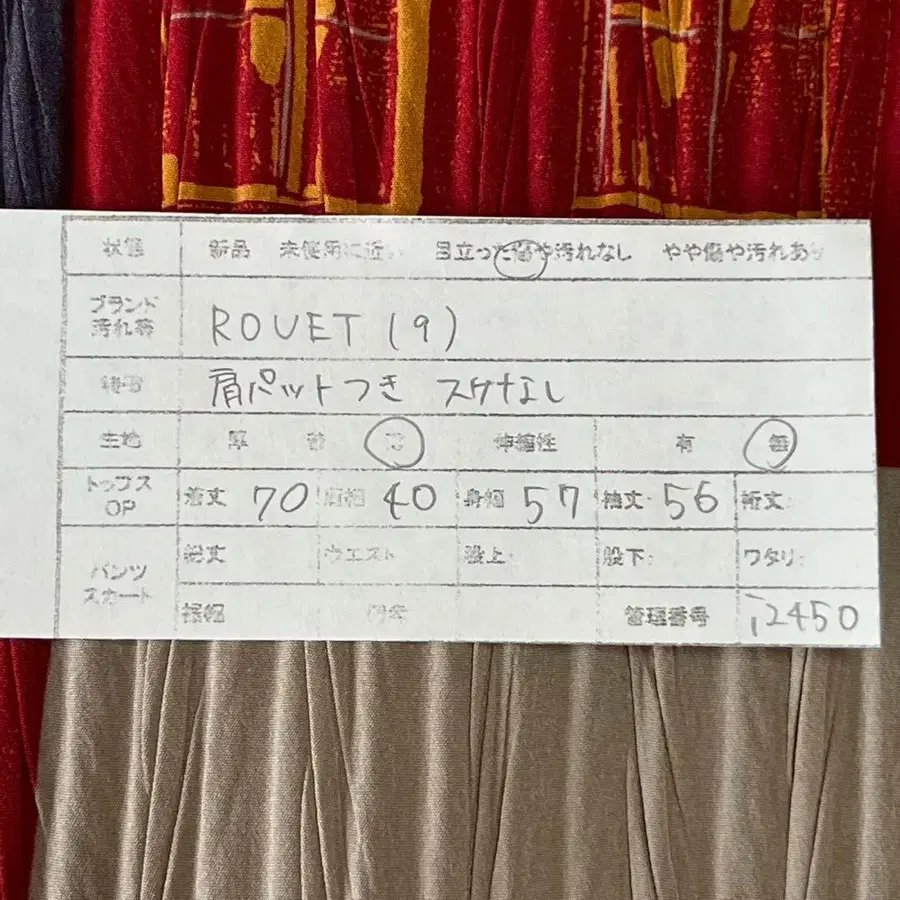 状態 新品 未使用に近い 目立った傷や汚れなし やや傷や汚れあり
ブランド
汚れ等
ROUET (9)
特徴 肩パットつき スケなし
生地 厚 普 薄 伸縮性 有 無
トップス
OP
着丈 70 肩幅 40 身幅 57 袖丈: 56 裄丈:
パンツ
スカート
総丈 ウエスト 股上: 股下: ワタリ:
裾幅 管理番号 i2450